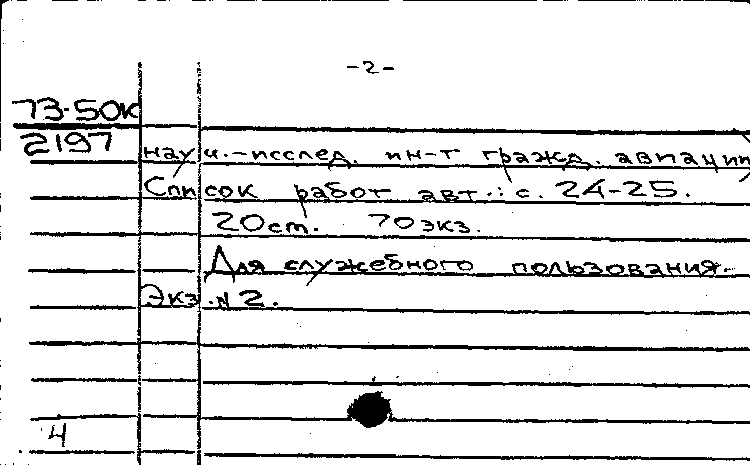 -2-
73-50к
2197
науч.-исслед. ин-т гражд. авиации
Список работ авт.: с. 24-25.
20см. 70экз.
Для служебного пользования.-
Экз.N2.
4